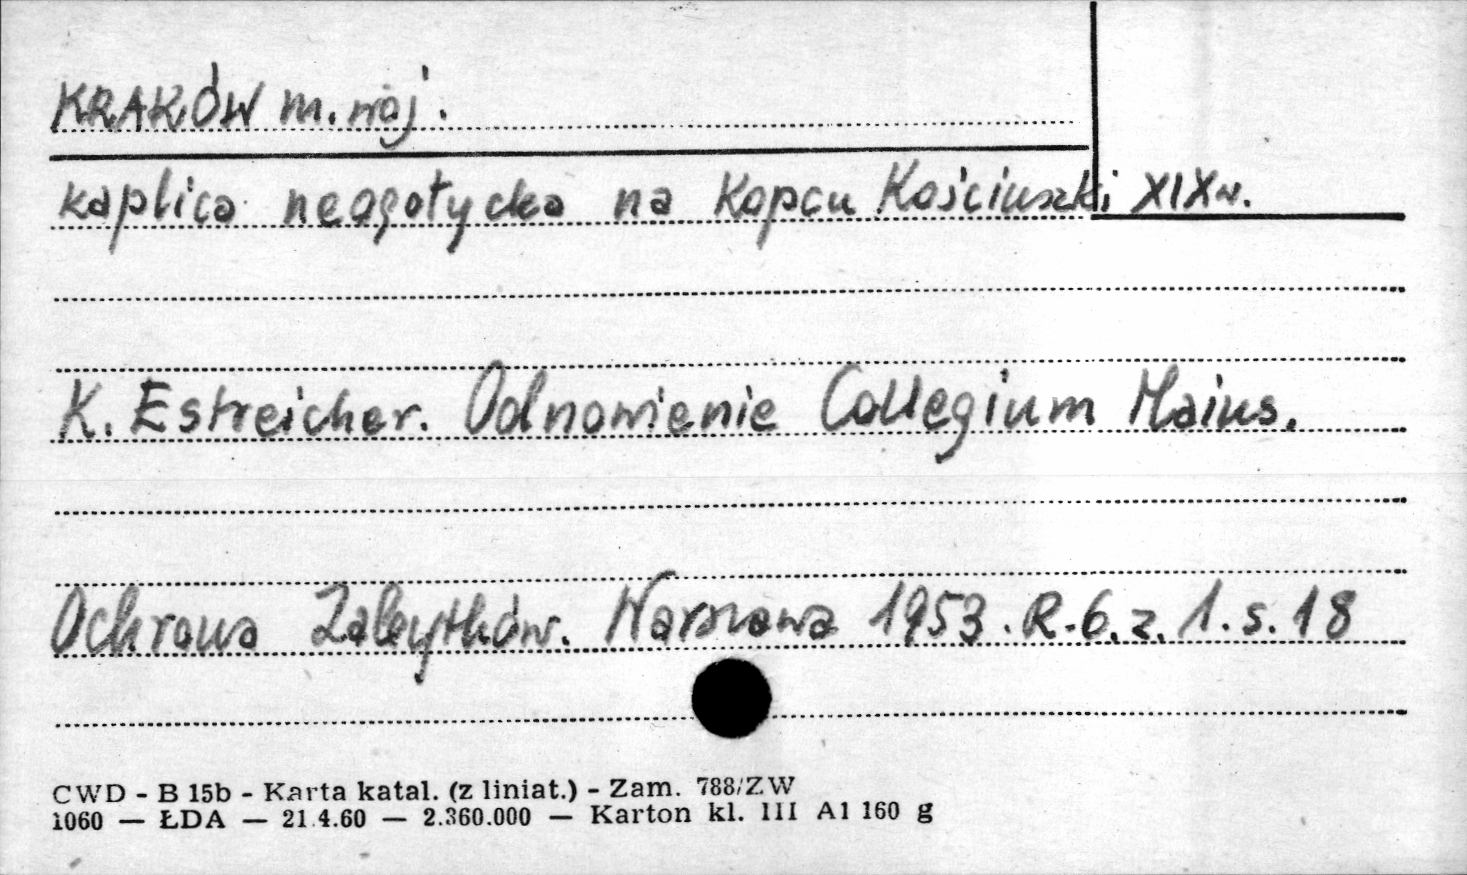 KRAKÓW m. woj.
kaplica neogotycka na Kopcu Kościuszki XIX w.
K. Estreicher. Odnowienie Collegium Maius.
Ochrona Zabytków. Warszawa 1953. R. 6. z. 1. s. 18
CWD - B 15b - Karta katal. (z liniat.) - Zam. 788/ZW
1060 — ŁDA — 21.4.60 — 2.360.000 — Karton kl. III A1 160 g